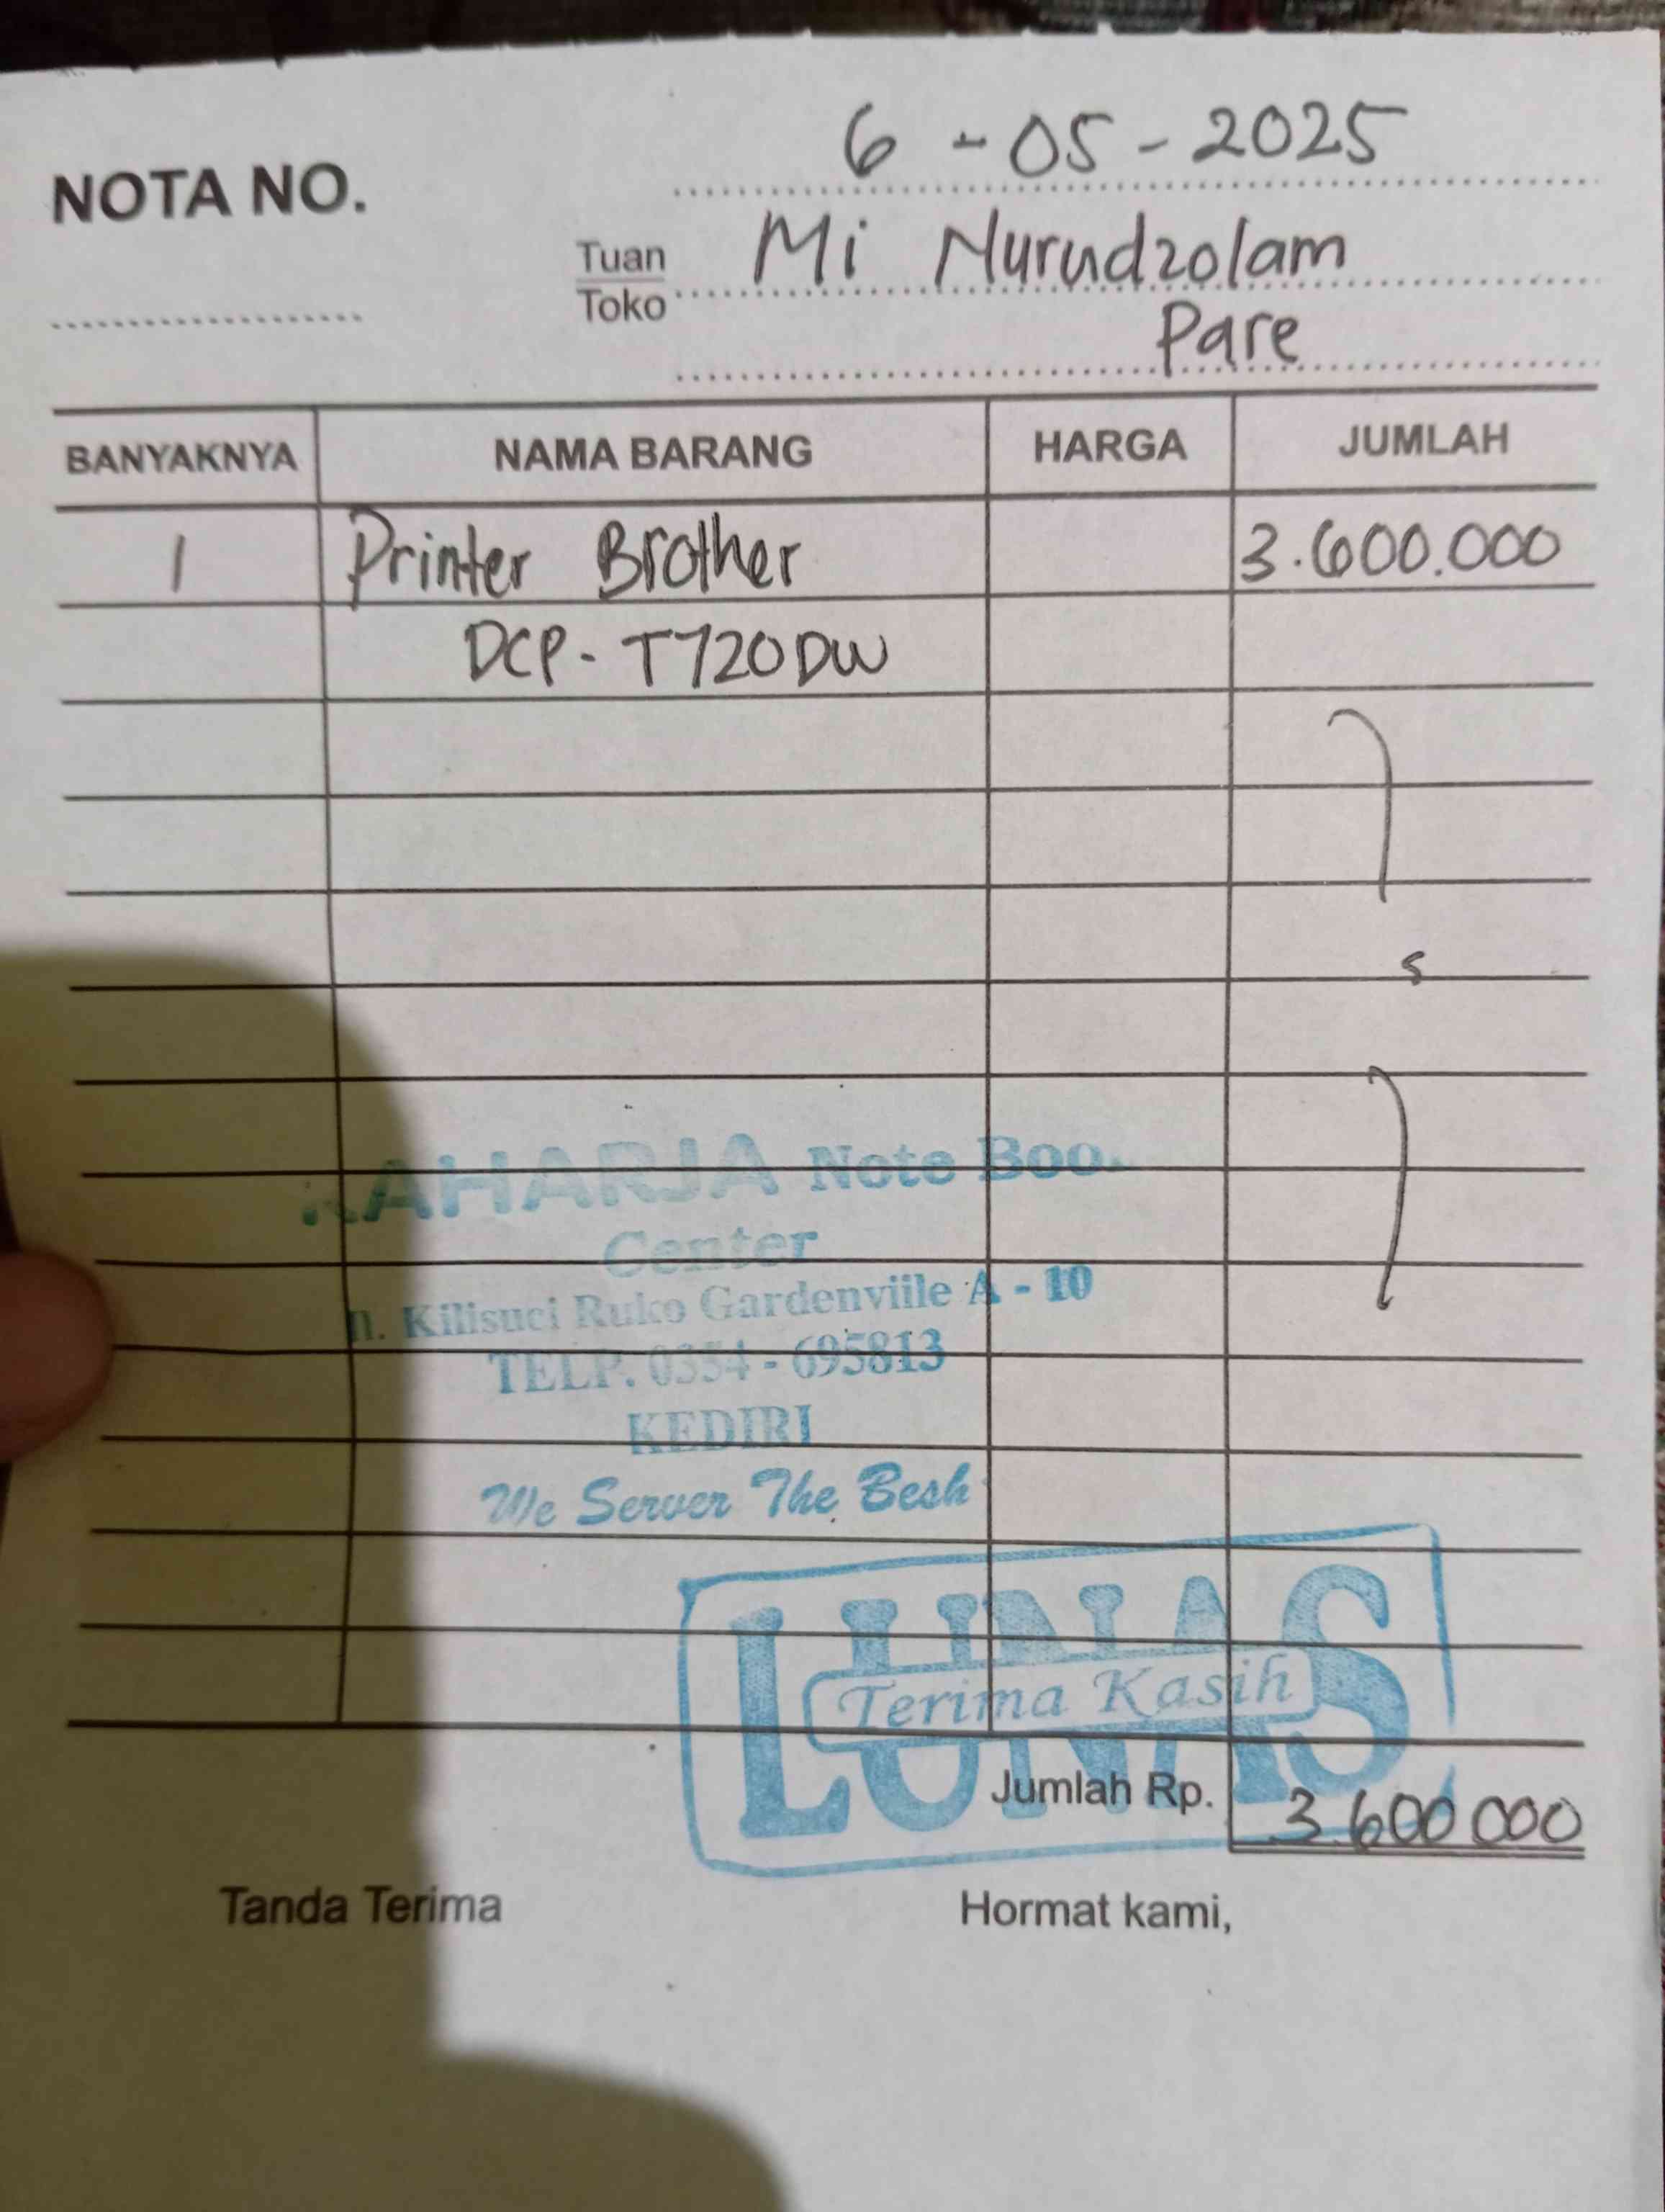 6 - 05 - 2025
NOTA NO.
Tuan Mi Nurudzolam
Toko
Pare
BANYAKNYA NAMA BARANG HARGA JUMLAH
1 Printer Brother 3.600.000
DCP - T720DW
s
RAHARJA Note Boo
Center
Kilisuci Ruko Gardenviile A - 10
TELP. 0354 - 695813
KEDIRI
We Server The Besh
LUNAS
Terima Kasih
Jumlah Rp. 3.600 000
Tanda Terima Hormat kami,